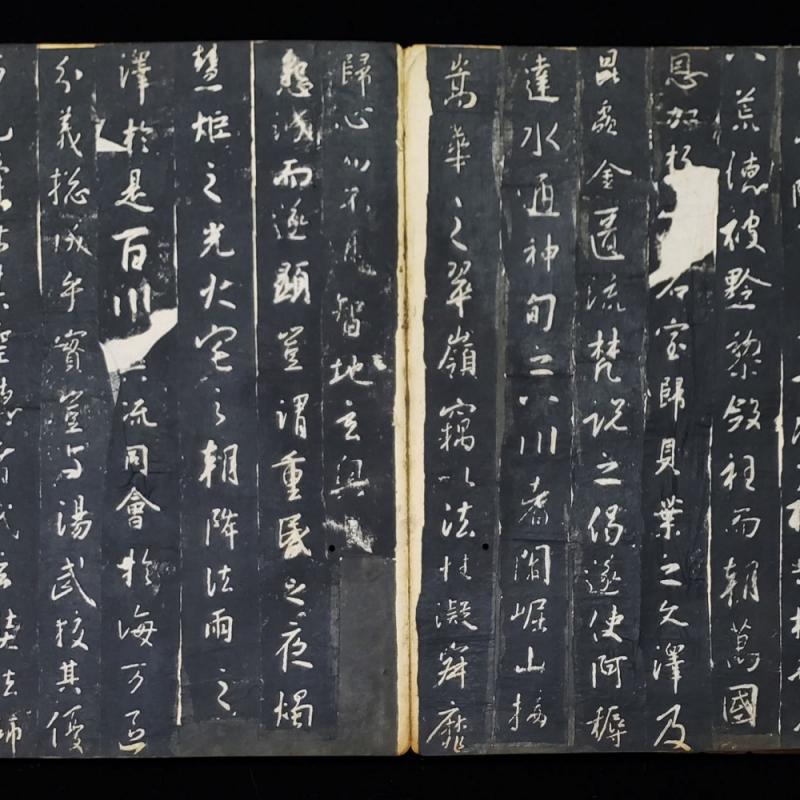 八荒德被黔黎斂衽而朝萬國
恩加朽石室歸貝葉之文澤及
昆蟲金匱流梵說之偈遂使阿耨
達水通神甸之八川耆闍崛山接
嵩華之翠嶺竊以法性凝寂靡
歸心而不通智地玄奧
懇誠而遂顯豈謂重昏之夜燭
慧炬之光火宅之朝降法雨之
澤於是百川流同會於海万區
分義揔成乎實豈与湯武挍其優